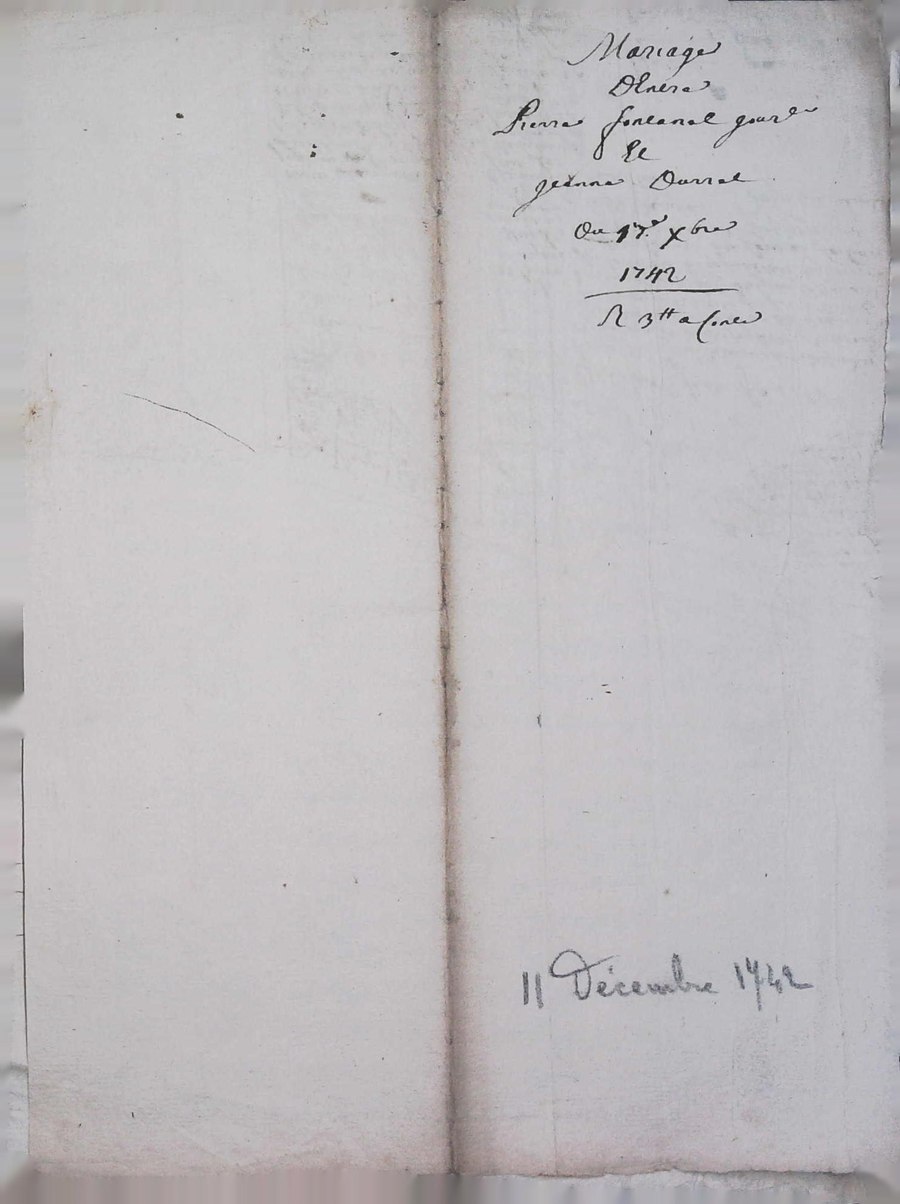 Mariage
D'Entre
Pierre fontanel
Et
jeanne Durral
Du 17.e xbre
1742
R 3tt a
11 Décembre 1742